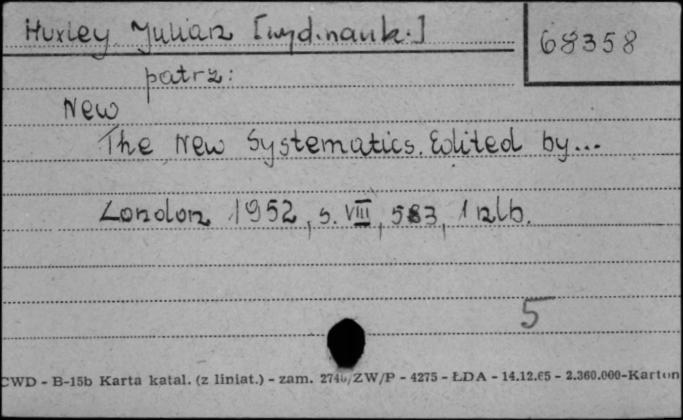 Huxley Julian [wyd.nauk.]
68358
patrz:
New
The New Systematics. Edited by...
London 1952, s. VIII, 583, 1 nlb.
5
CWD - B-15b Karta katal. (z liniat.) - zam. 2746/ZW/P - 4275 - ŁDA - 14.12.65 - 2.360.000-Karton